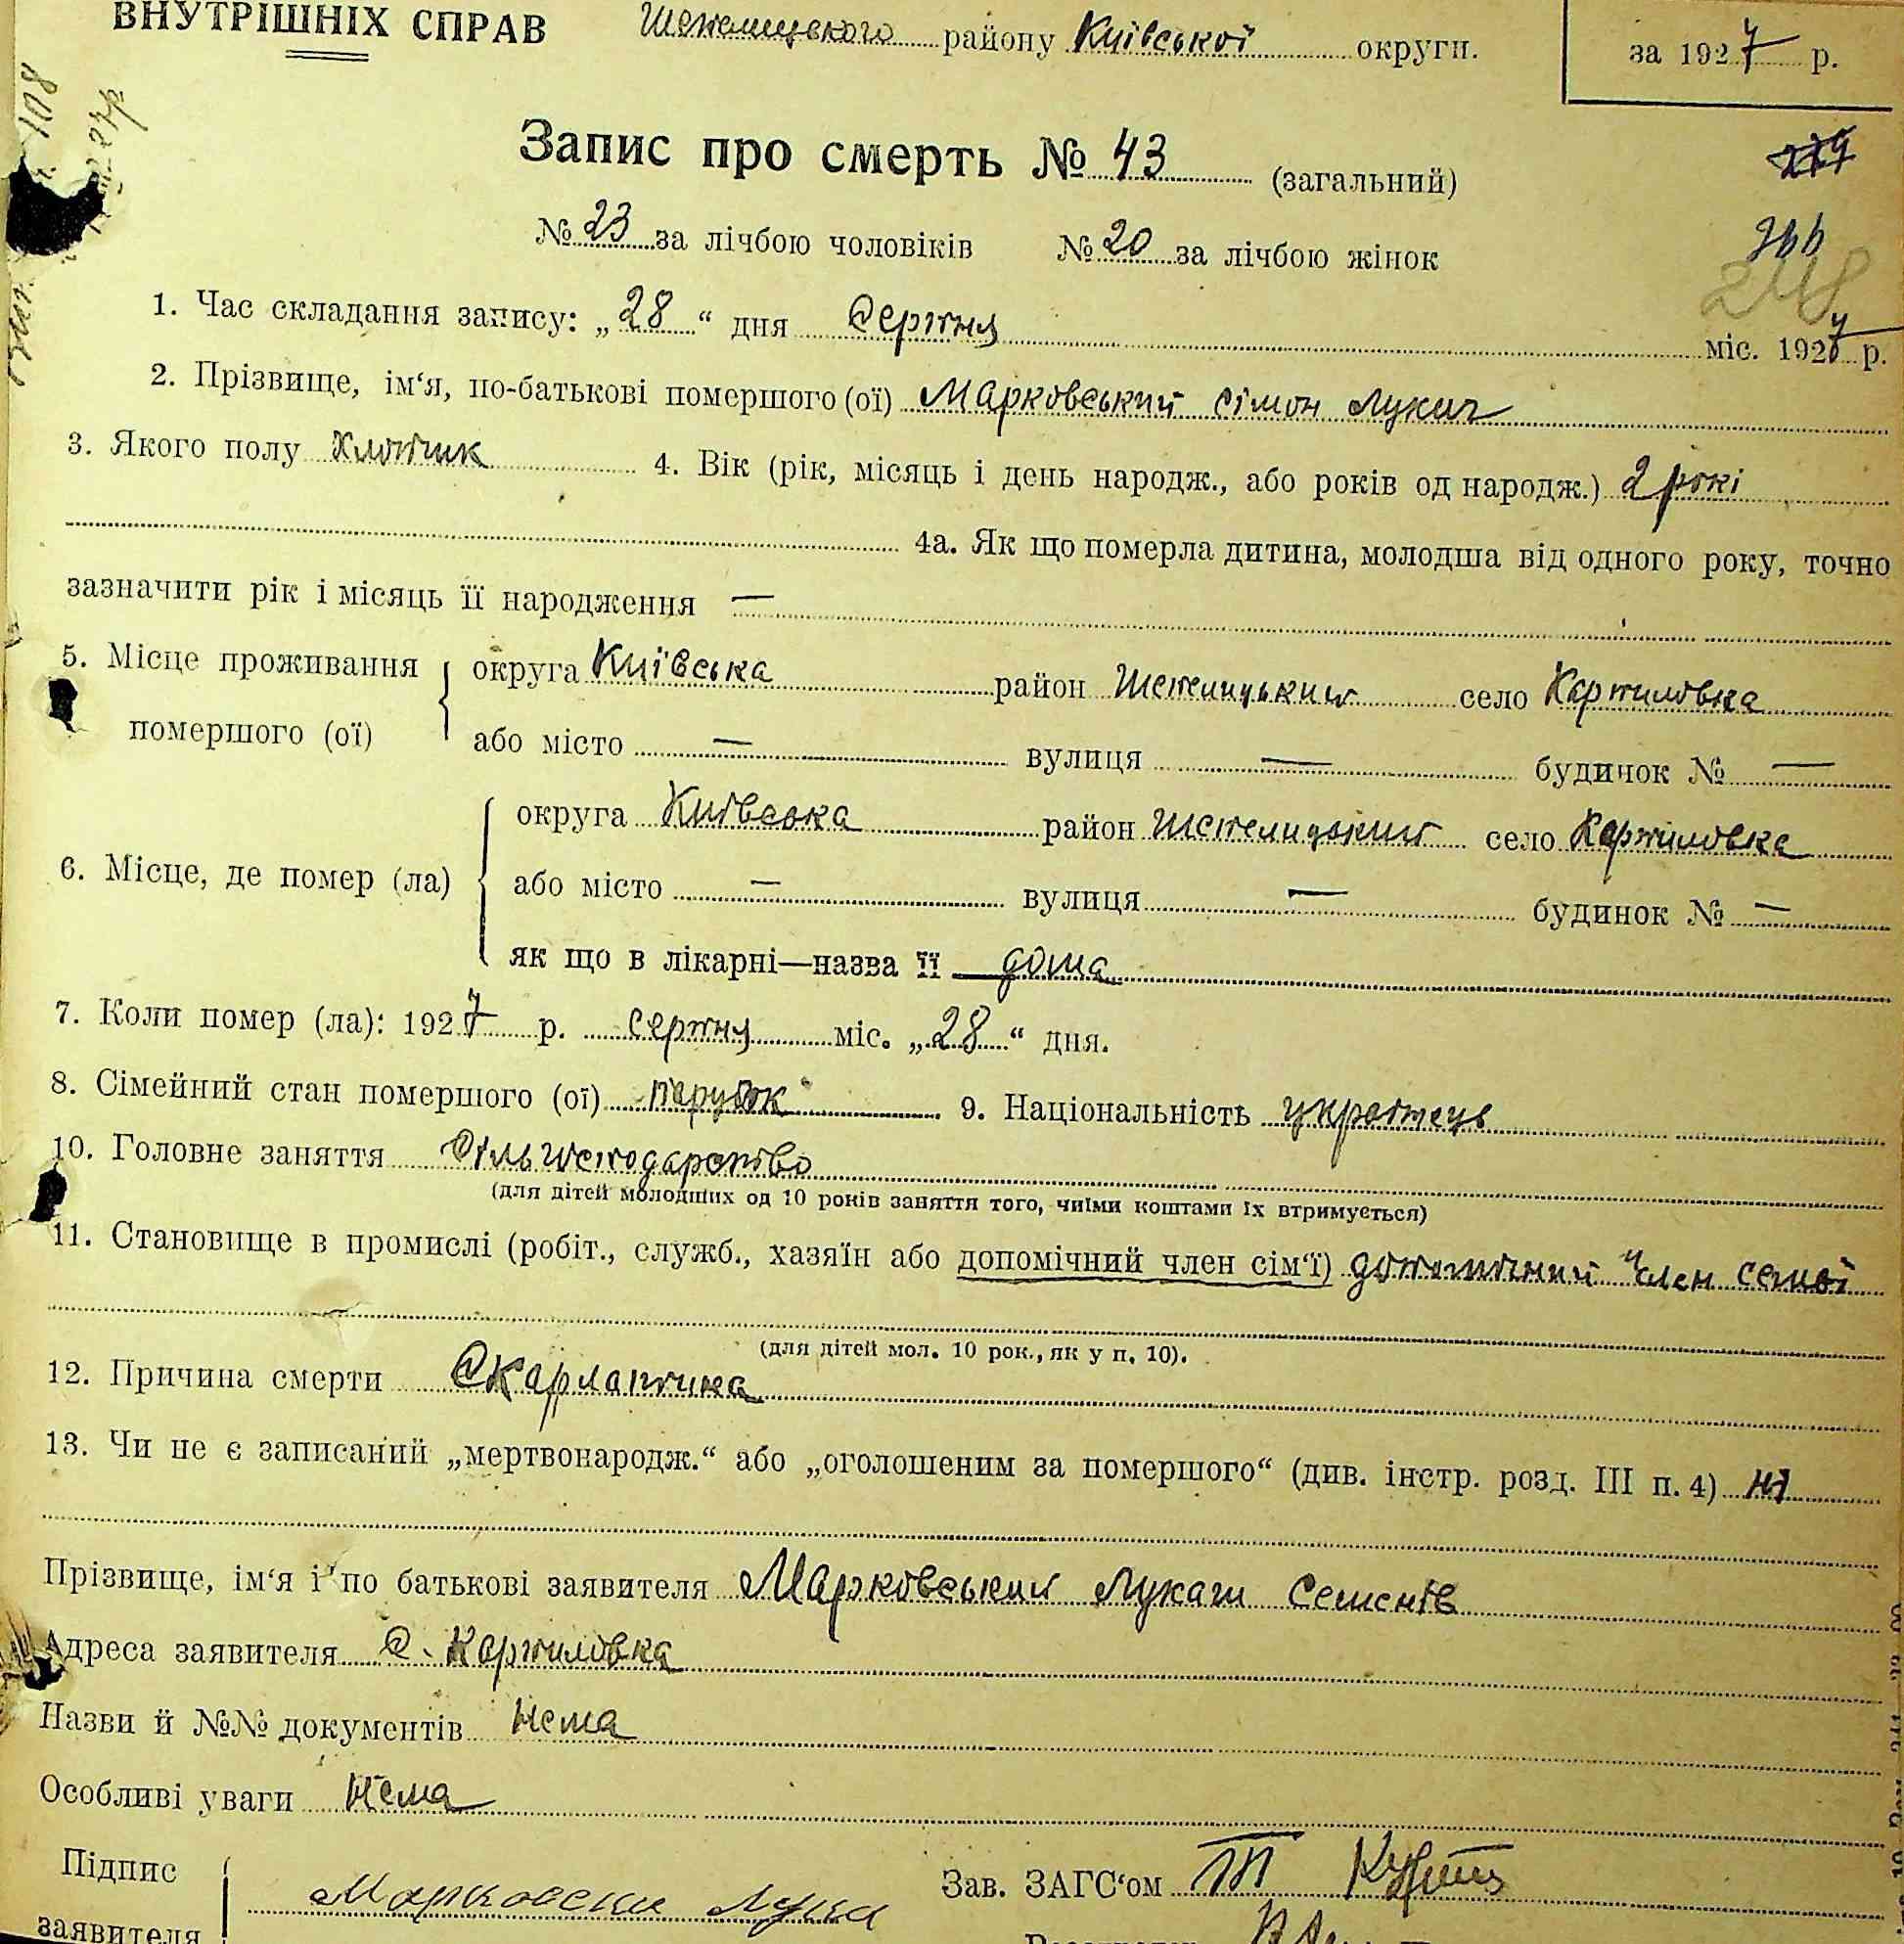 ВНУТРІШНІХ СПРАВ Шепелицького району Київської округи. за 1927 р.
Запис про смерть № 43 (загальний)
№ 23 за лічбою чоловіків № 20 за лічбою жінок
248
1. Час складання запису: „28“ дня Серпня міс. 1927 р.
2. Прізвище, ім‘я, по-батькові помершого (ої) Марковський Сімон Лукич
3. Якого полу Хлопчик 4. Вік (рік, місяць і день народж., або років од народж.) 2 рокі
4а. Як що померла дитина, молодша від одного року, точно
зазначити рік і місяць її народження —
5. Місце проживання округа Київська район Шепелицький село Карпиловка
помершого (ої) або місто — вулиця — будинок № —
6. Місце, де помер (ла) округа Київська район Шепелицький село Карпиловка
або місто — вулиця — будинок № —
як що в лікарні—назва її дома
7. Коли помер (ла): 1927 р. серпня міс. „28“ дня.
8. Сімейний стан помершого (ої) парубок 9. Національність українець
10. Головне заняття
(для дітей молодших од 10 років заняття того, чиїми коштами їх втримується)
11. Становище в промислі (робіт., служб., хазяїн або допомічний член сім‘ї) допомічний член семьї
(для дітей мол. 10 рок., як у п. 10).
12. Причина смерти Скарлатина
13. Чи не є записаний „мертвонародж.“ або „оголошеним за помершого“ (див. інстр. розд. III п. 4) ні
Прізвище, ім‘я і по батькові заявителя Марковський Лукаш Семенів
Адреса заявителя с. Карпиловка
Назви й №№ документів Нема
Особливі уваги Нема
Підпис
заявителя Марковски Лука Зав. ЗАГС‘ом